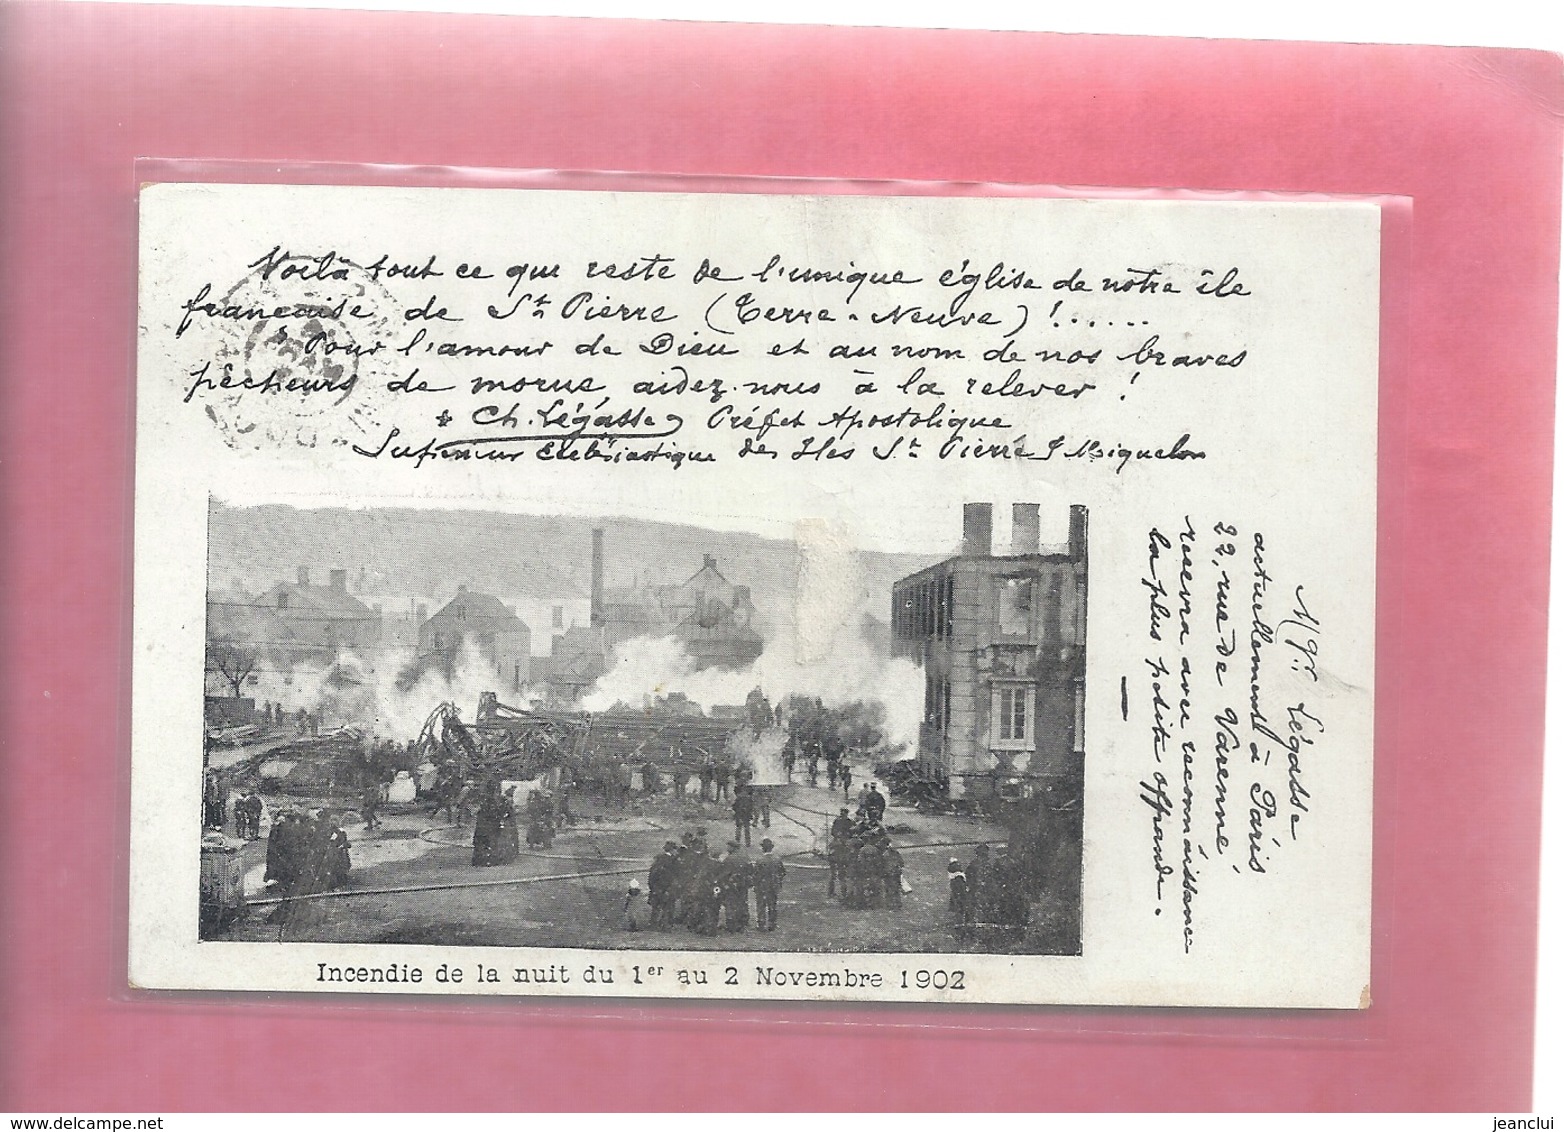 Voilà tout ce qui reste de l'unique église de nôtre île
française de St Pierre (Terre-Neuve) !......
Pour l'amour de Dieu et au nom de nos braves
pêcheurs de morue, aidez-nous à la relever !
Ch. Légasse, Préfet Apostolique
Supérieur Ecclésiastique des Iles St Pierre & Miquelon
Mgr. Légasse
actuellement à Paris
22, rue de Varenne,
recevra avec reconnaissance
la plus petite offrande.
Incendie de la nuit du 1er au 2 Novembre 1902
jeanclui